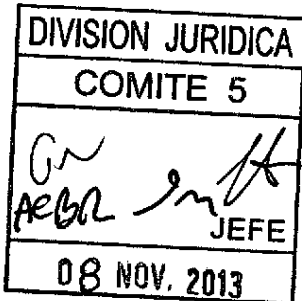 DIVISION JURIDICA
COMITE 5
JEFE
08 NOV. 2013